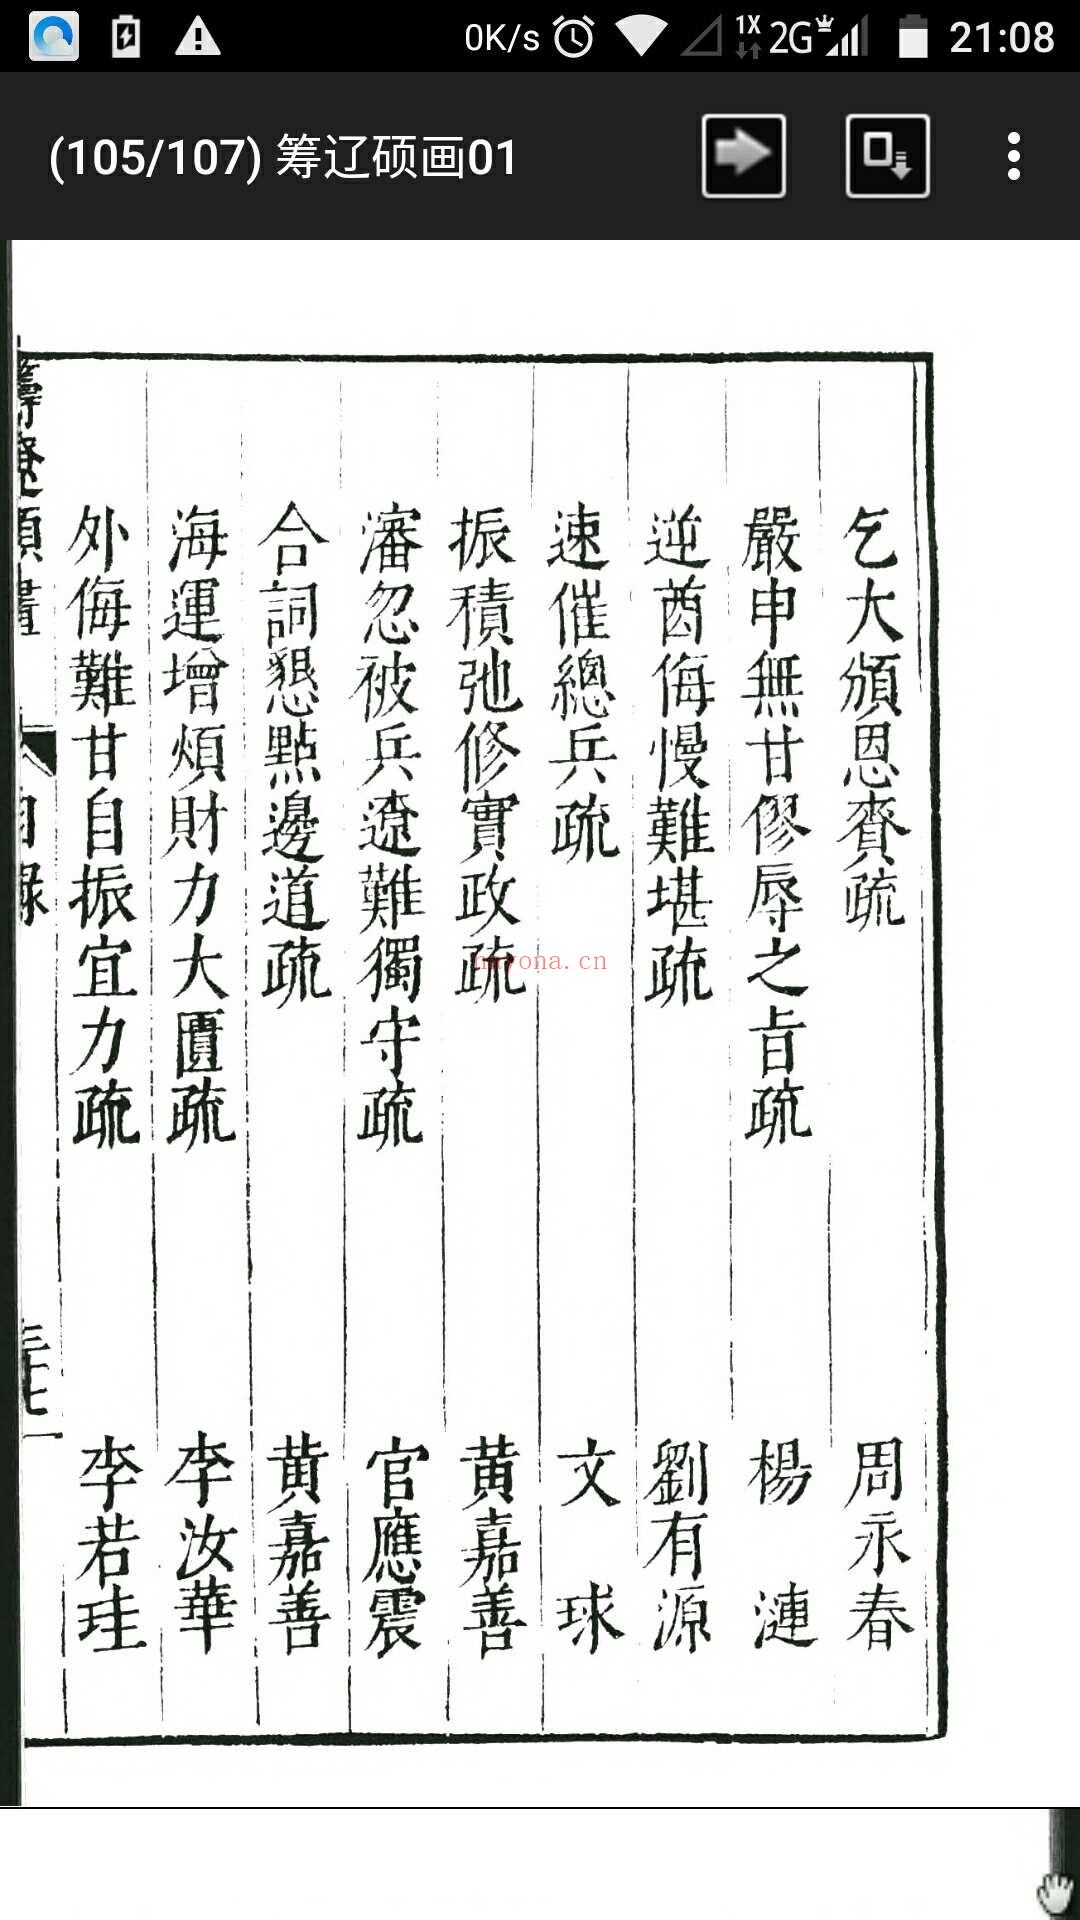 0K/s 1X 2G 21:08
(105/107) 筹辽硕画01
乞大頒恩賚疏 周永春
嚴申無甘僇辱之㫖疏 楊漣
逆酋侮慢難堪疏 劉有源
速催總兵疏 文球
振積弛修實政疏 黄嘉善
瀋忽被兵遼難獨守疏 官應震
合詞懇點邊道疏 黄嘉善
海運增煩財力大匱疏 李汝華
外侮難甘自振宜力疏 李若珪
籌遼碩畫 目録
nayona.cn